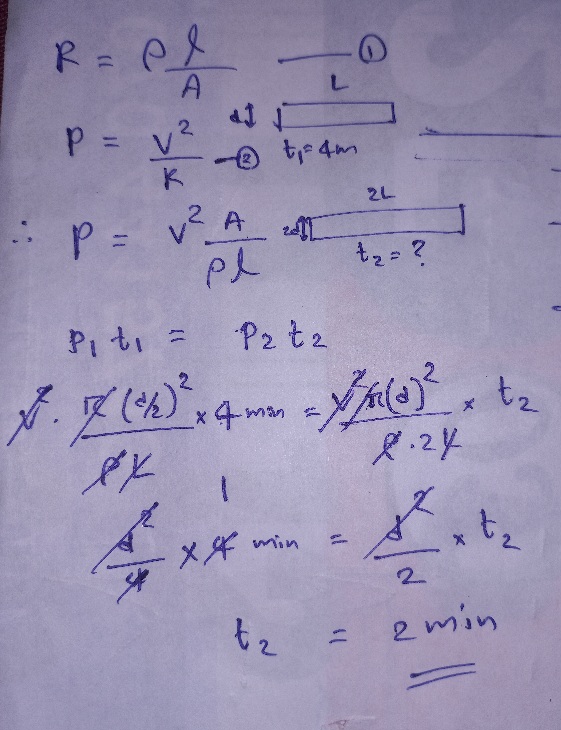 R = ρ l / A — ①
L
d
P = V² / R — ②
t₁ = 4m
∴ P = V² A / ρ l
2L
2d
t₂ = ?
P₁ t₁ = P₂ t₂
V². π (d/2)² / ρ L × 4 min = V² π (d)² / ρ . 2L × t₂
1
d² / 4 × 4 min = d² / 2 × t₂
t₂ = 2 min